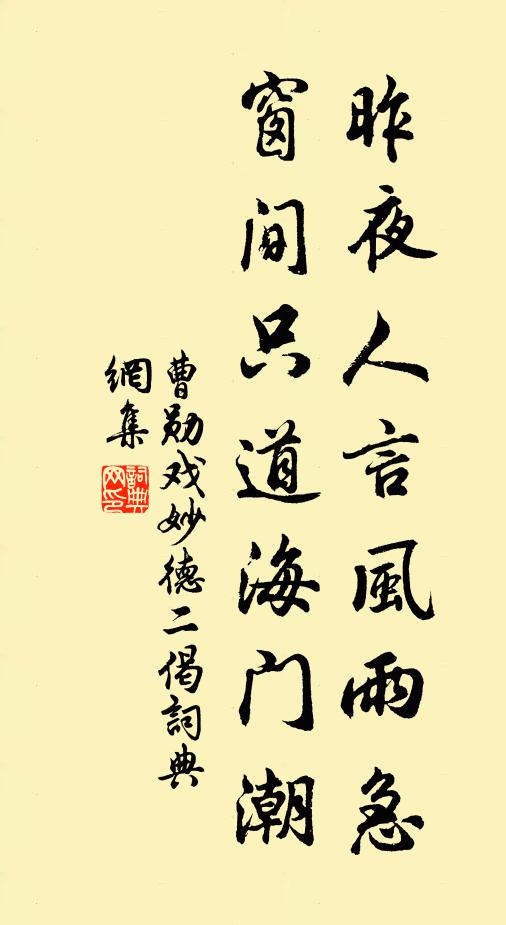 昨夜人言風雨急
窗间只道海门潮
曹勋戏妙德二偈詞典
網集
詞典網印